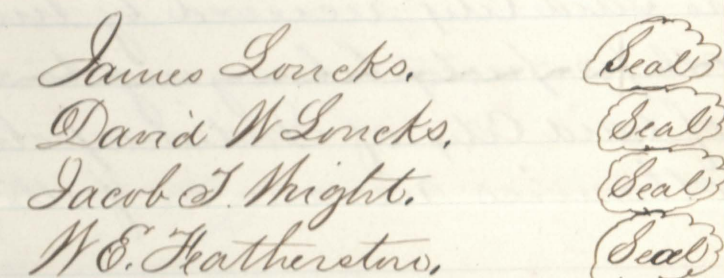 James Loucks. Seal
David W Loucks. Seal
Jacob T. Wright. Seal
W E. Featherston. Seal